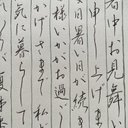 暑中お見舞
申し上げま
日暑い日が続
様いかがお過
かげさまで私
気に暮らして